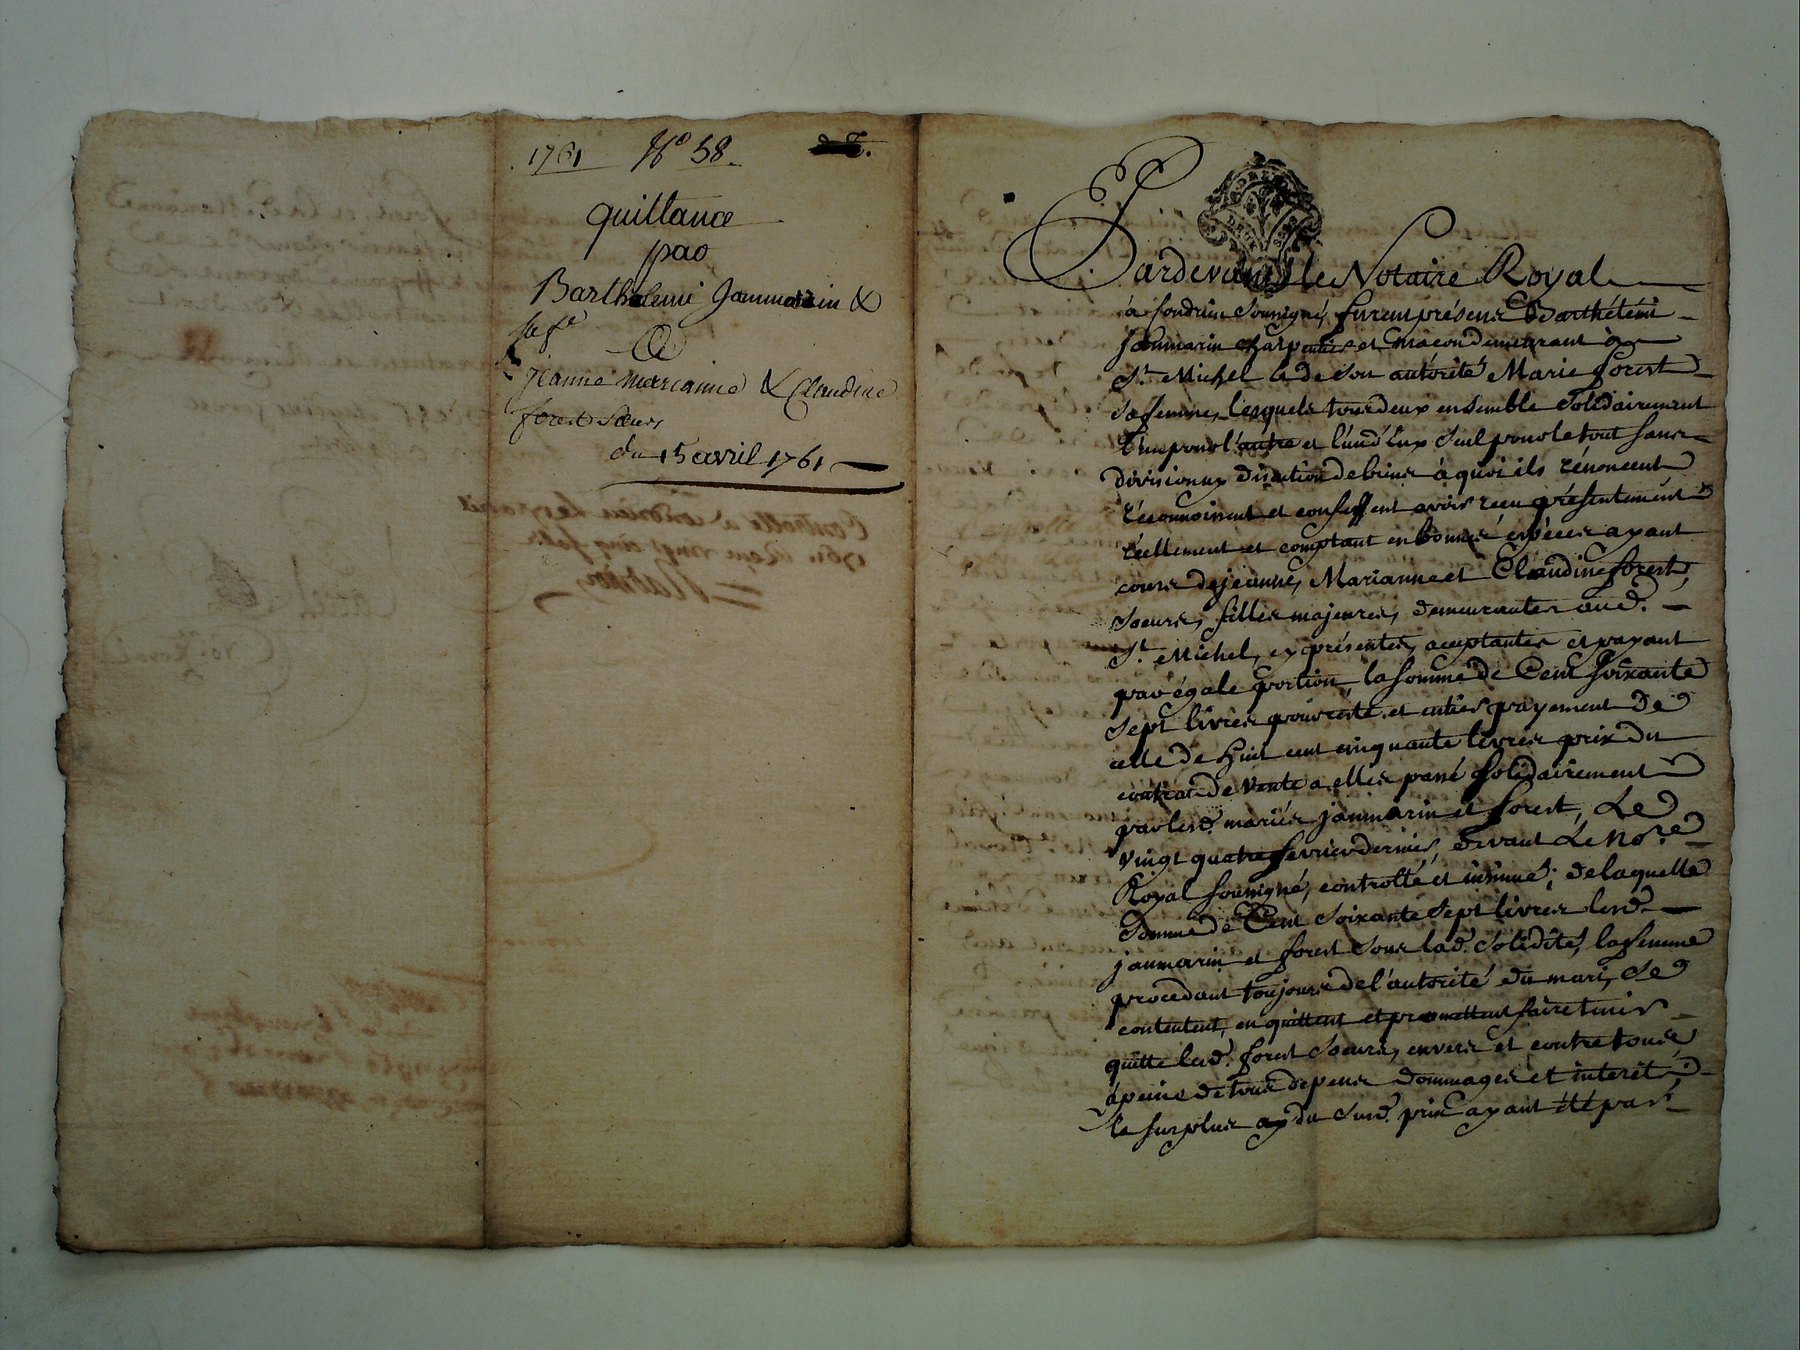 1761 N° 58.
quittance
par
Barthelemi Jaumarin &
sa fe
a
Jeanne marianne & Claudine
forest sœurs
du 15 avril 1761
Pardevant le Notaire Royal
à Condrieu soussigné, furent présens Barthélémi
Jaumarin charpentier et macon demeurant à
St. Michel & de son autorité Marie forest
sa femme, lesquels tous deux ensemble solidairement
l'un pour l'autre et l'un d'eux seul pour le tout sans
division ny disention de biens à quoi ils rénoncent
réconnoissent et confessent avoir reçu présentement
réellement et comptant en bonnes espèces ayant
cours de jeanne, Marianne et Claudine forest,
soeurs, filles majeures, demeurantes aud.
St. Michel, cy présentes, acceptantes et payant
par égale portion, la somme de Cent soixante
sept livres pour reste et entier payement de
celle de huit cent cinquante livres prix du
contrat de vente a elles passé solidairement
par lesd. mariés jaumarin et forest, Le
vingt quatre fevrier dernier, devant Le Nore.
Royal soussigné, controllé et insinué; de laquelle
somme de Cent soixante sept livres lesd.
jaumarin et forest sous lad. solidité, la femme
procedant toujours de l'autorité du mari, se
contentent, en quittent et promettent faire tenir
quitte lesd. forest soeurs, envers et contre tous
à peine de tous depens dommages et interets,
le surplus dud. prix ayant été par